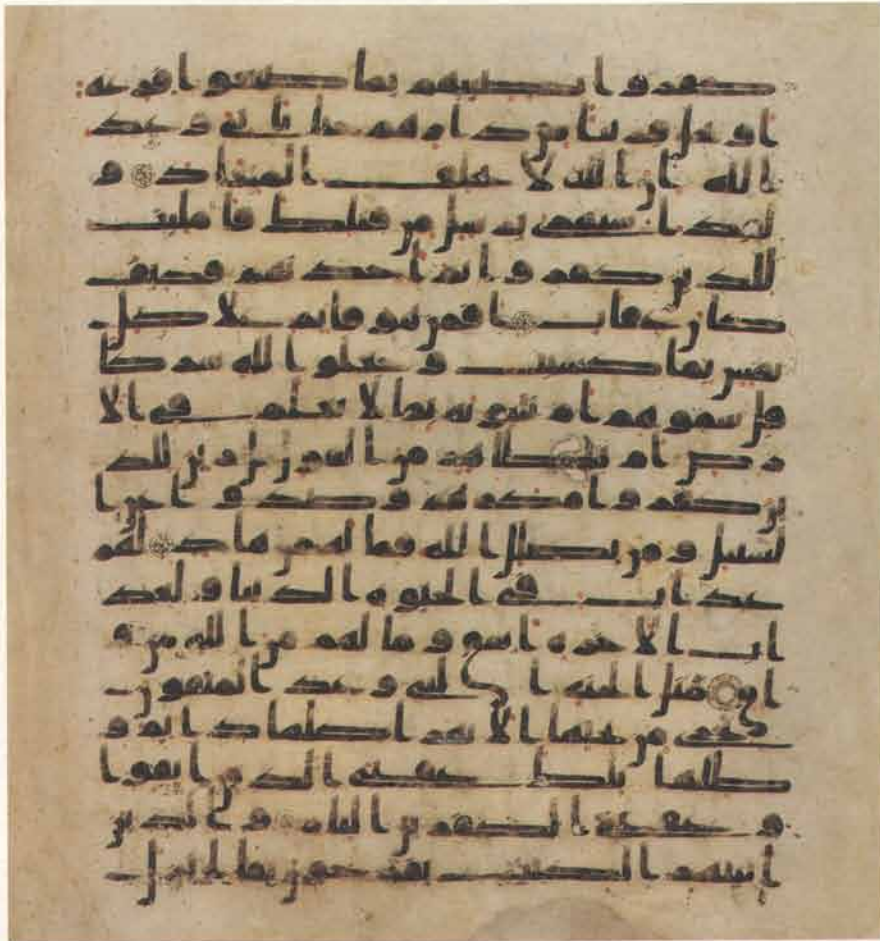 كفروا تصيبهم بما صنعوا قرعة
او تحل قريبا من دارهم حتى ياتى وعد
الله ان الله لا يخلف الميعاد و
لقد استهزى برسل من قبلك فامليت
للذين كفروا ثم اخذتهم فكيف
كان عقاب افمن هو قايم على كل
نفس بما كسبت وجعلوا لله شركا
قل سموهم ام تنبونه بما لا يعلم فى الا
رض ام بظهر من القول بل زين للذ
ين كفروا مكرهم وصدوا عن ا
لسبيل ومن يضلل الله فما له من هاد لهم
عذاب فى الحيوة الدنيا ولعذ
اب الاخرة اشق وما لهم من الله من و
اق مثل الجنة التى وعد المتقون
تجرى من تحتها الانهر اكلها دايم و
ظلها تلك عقبى الذين اتقوا
وعقبى الكفرين النار والذين
اتينهم الكتب يفرحون بما انزل